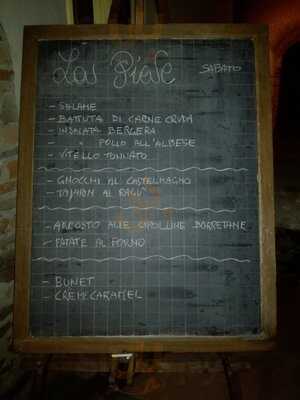 La Pieve
SABATO
- SALAME
- BATTUTA DI CARNE CRUDA
- INSALATA BERGERA
- " POLLO ALL'ALBESE
- VITELLO TONNATO
- GNOCCHI AL CASTELMAGNO
TAJARIN AL RAGU'
- ARROSTO ALLE CIPOLLINE BORRETTANE
- PATATE AL FORNO
- BUNET
- CREM CARAMEL